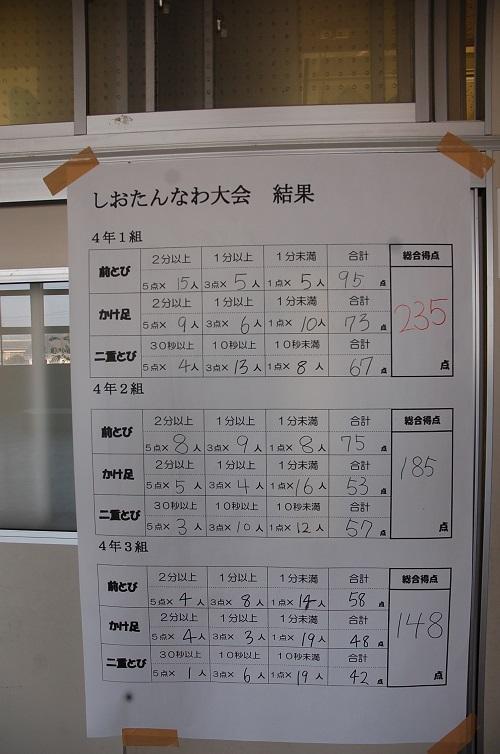 しおたんなわ大会　結果
4年1組
前とび 2分以上 1分以上 1分未満 合計 総合得点
5点× 15人 3点× 5人 1点× 5人 95点
かけ足 2分以上 1分以上 1分未満 合計 235点
5点× 9人 3点× 6人 1点× 10人 73点
二重とび 30秒以上 10秒以上 10秒未満 合計
5点× 4人 3点× 13人 1点× 8人 67点
4年2組
前とび 2分以上 1分以上 1分未満 合計 総合得点
5点× 8人 3点× 9人 1点× 8人 75点
かけ足 2分以上 1分以上 1分未満 合計 185点
5点× 5人 3点× 4人 1点× 16人 53点
二重とび 30秒以上 10秒以上 10秒未満 合計
5点× 3人 3点× 10人 1点× 12人 57点
4年3組
前とび 2分以上 1分以上 1分未満 合計 総合得点
5点× 4人 3点× 8人 1点× 14人 58点
かけ足 2分以上 1分以上 1分未満 合計 148点
5点× 4人 3点× 3人 1点× 19人 48点
二重とび 30秒以上 10秒以上 10秒未満 合計
5点× 1人 3点× 6人 1点× 19人 42点